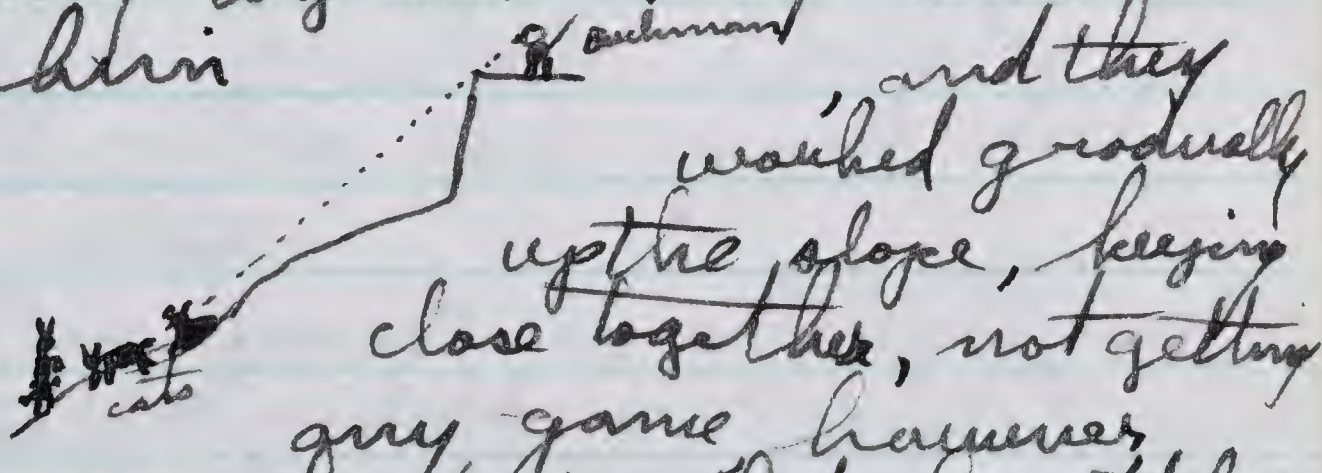 him
, and they
worked gradually
up the slope, keeping
close together, not getting
cats
any game however